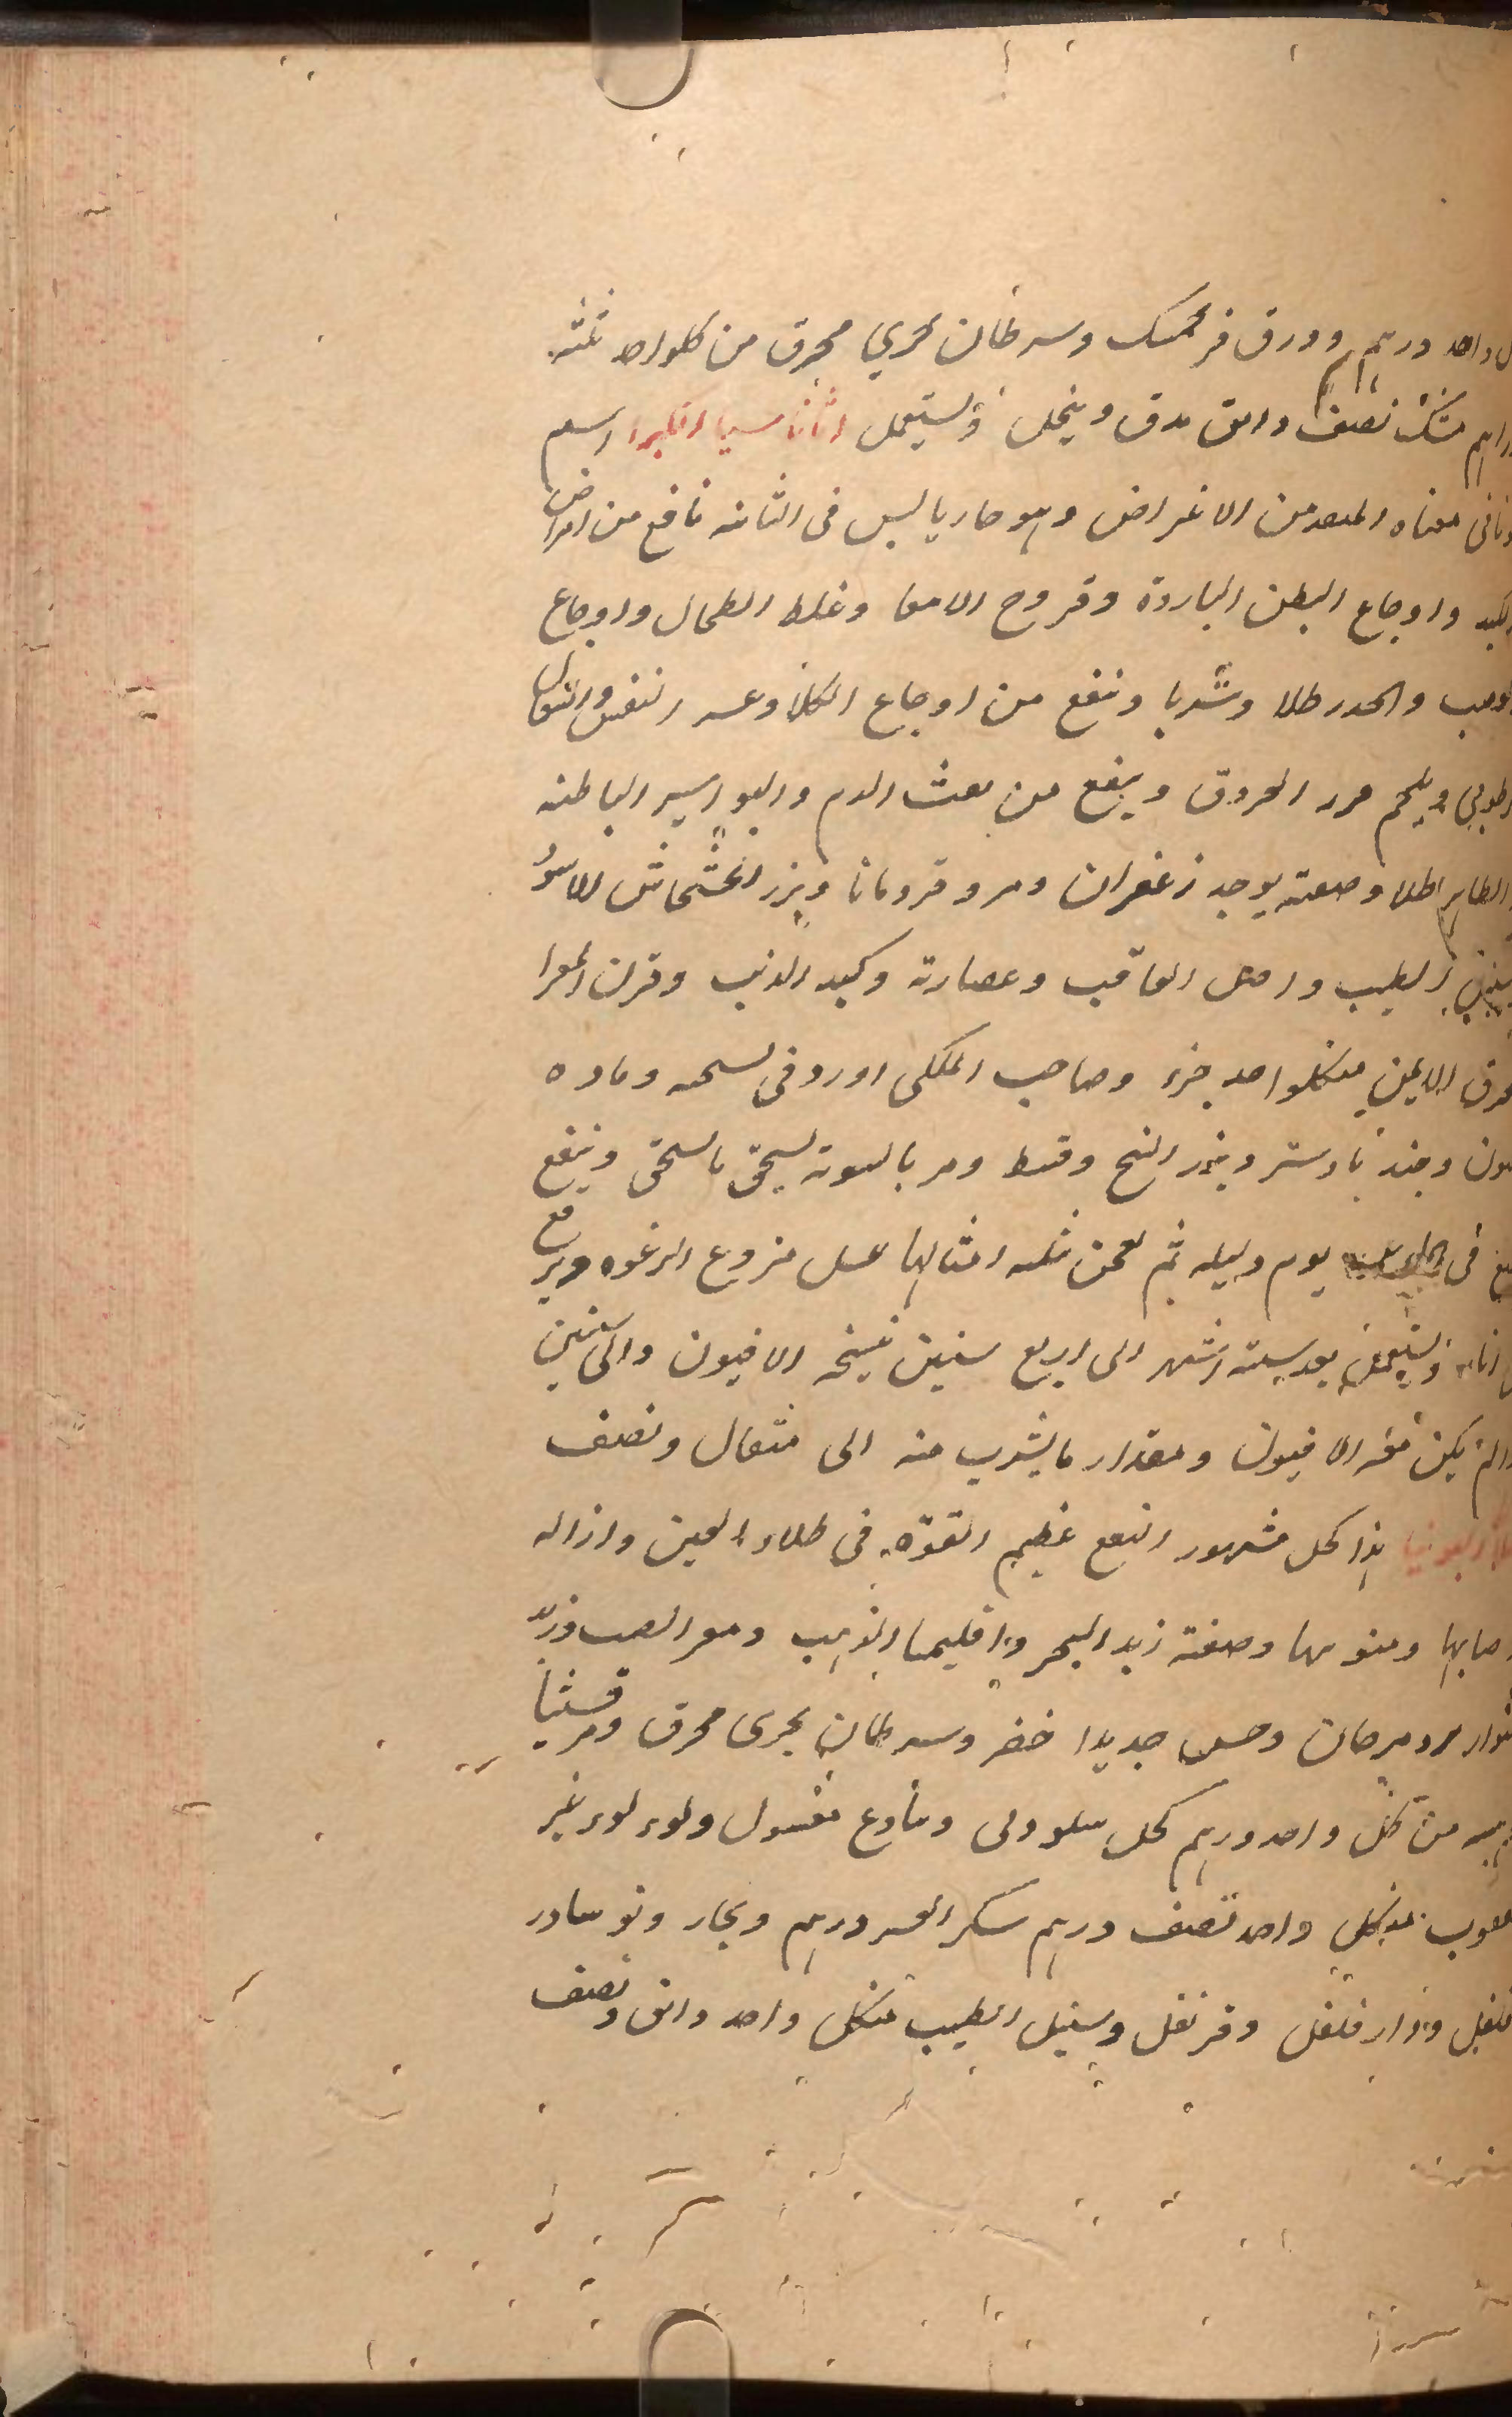 واحد درهم وورق فرنجمسك وسرطان بحري محرق من كلواحد ثلثه
دراهم مسك نصف دانق يدق وينخل ويستعمل اثاناسيا الكبرا اسم
يوناني معناه المنقذ من الاغراض وهو حار يابس في الثانيه نافع من امراض
الكبد واوجاع البطن البارده وقروح الامعا وغلظ الطحال واوجاع
والخدر طلا وشربا وينفع من اوجاع الكلا وعسر النفس والسعال
الرطوبي ويلحم العروق وينفع من نفث الدم والبواسير الباطنه
والظاهر اطلا وصفته يوخد زعفران ومر وقردمانا وبزر الخشخاش الاسود
الطيب واصل الغافت وعصارته وكبد الذيب وقرن المعزا
محرق الايمن منكلواحد جزء وصاحب الملكي اورد في نسخه وماده
وجندبادستر وبزر البنج وقسط ومر بالسويه يسحق بالسحق وينفع
في يوم وليله ثم يعجن بثلثه امثالها عسل منزوع الرغوه ويرفع
في اناء ويستعمل بعد سته اشهر الى اربع سنين نسخه الافيون والى سنين
والم يكن فيه الافيون ومقدار ما يشرب منه الى مثقال ونصف
هذا كحل مشهور النفع عظيم القوة في طلاء العين وازاله
وصفته زبد البحر واقليميا الذهب
ومرجان جديدا خضر وسرطان بحري محرق ومرقشيثا
من كل واحد درهم كحل وماذع مغسول ولوء لوء غير
مثقوب منكل واحد نصف درهم سكر العسر درهم ونوسادر
فلفل ودار فلفل وقرنفل وسنبل الطيب منكل واحد دانق ونصف